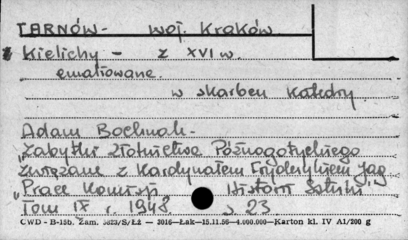 TARNÓW - woj. Kraków
Kielichy - z XVI w.
emaliowane.
w skarbcu Katedry
Adam Bochnak -
"Zabytki złotnictwa Późnogotyckiego
związane z Kardynałem Fryderykiem Jag
"Prace Komisji Historii Sztuki"
Tom IX r. 1948. s 23.
CWD - B-15b. Zam. 5623/S/Łż - 3016-Łak-15.11.56-1.000.000-Karton kl. IV A1/200 g